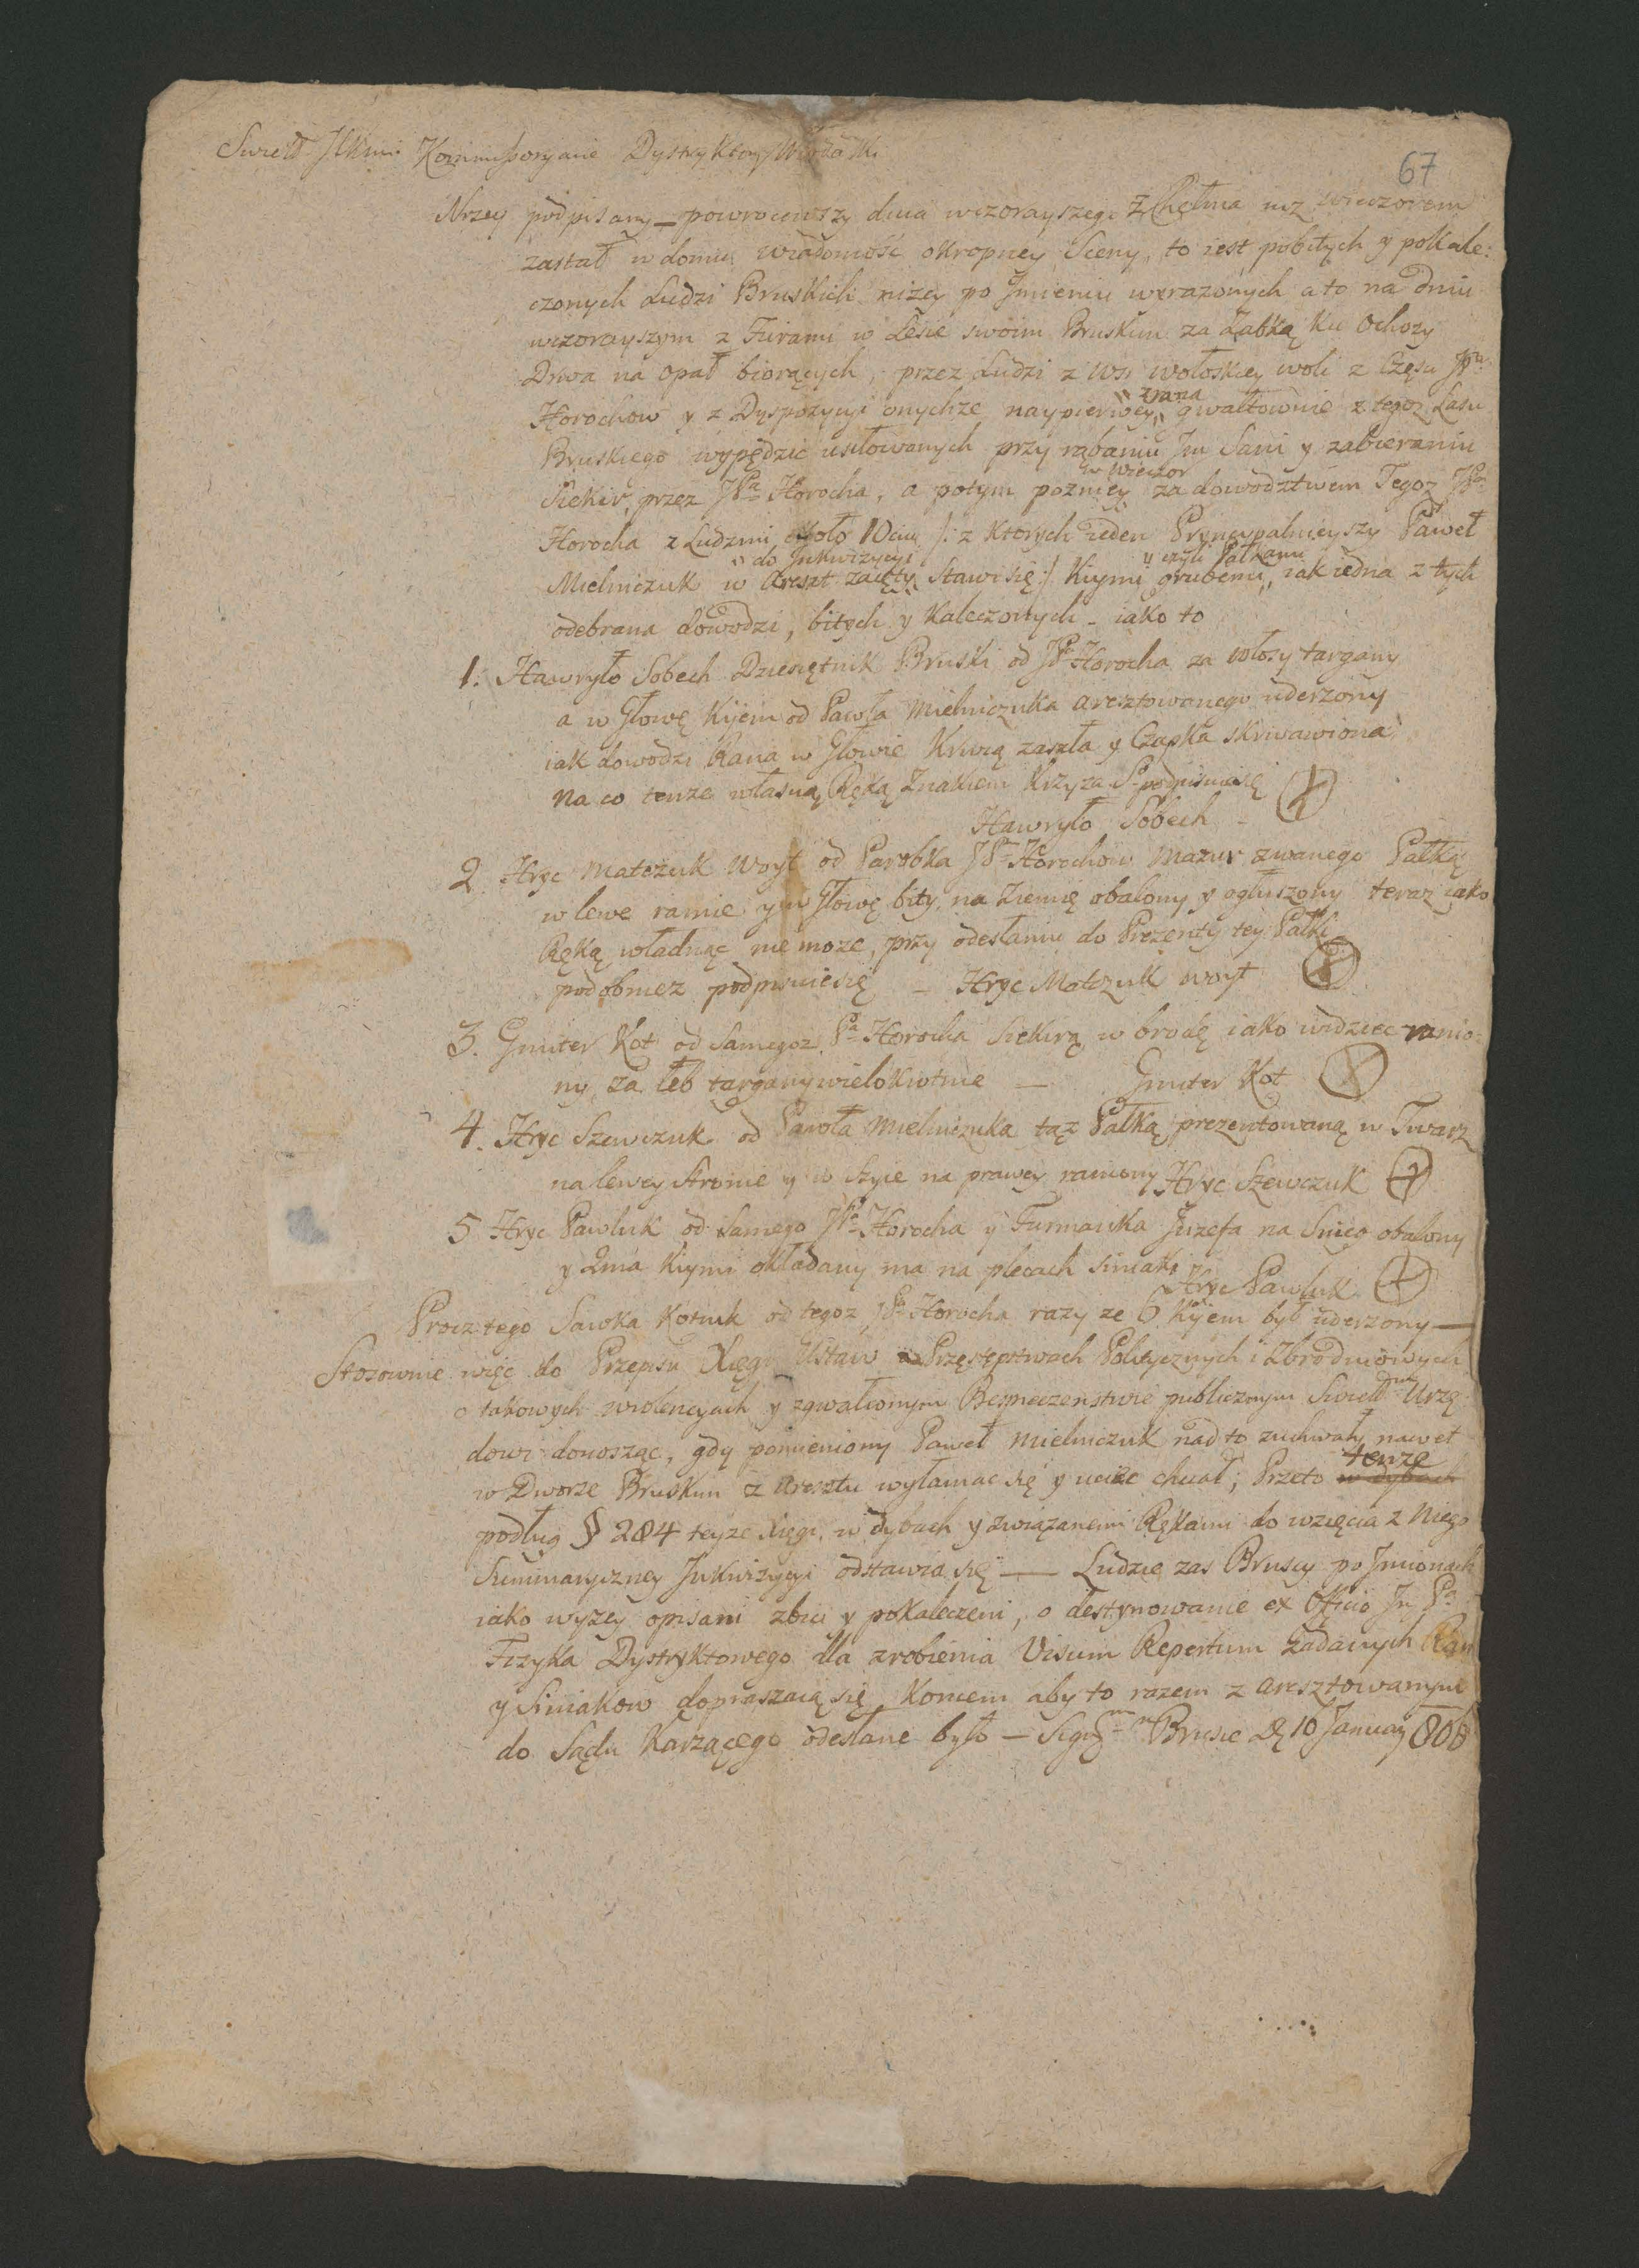 67
Swietł. Kommissoryacie Dystryktowy Włodaski
Niżey podpisany — powrociwszy dnia wczorayszego z Chełma iuż wieczorem
zastał w domu wiadomość okropney Sceny, to iest pobitych y pokale:
czonych Ludzi Bruskich niżey po Jmieniu wyrażonych a to na dniu
wczorayszym z Furami w Lesie swoim Bruskim za Zabką ku Ochozy
Drwa na opał biorących, przez Ludzi z wsi wołoskiey woli z Części JP.
Horochow y z Dyspozycyi onychże naypierwey " zrana " gwałtownie z tegoż Lasu
Bruskiego wypędzić usiłowanych przy rąbaniu Im Sani y zabieraniu
Siekir, przez JPa Horocha, a potym pozniey w wieczor za dowodztwem Tegoż JPa
Horocha z Ludzmi około 10ciu /: z ktorych ieden Pryncypalnieyszy Paweł
Mielniczuk w Areszt zaięty " do Jnkwizycyi " stawi się :/ Kiymi grubemi " czyli Pałkami " iak iedna z tych
odebrana dowodzi, bitych y kaleczonych - iako to
1. Hawryło Sobech Dziesiętnik Bruski od JPa Horocha za włosy targany
a w Głowę Kijem od Pawła Mielniczuka aresztowanego uderzony
iak dowodzi Rana w Głowie Krwią zaszła y Czapka skrwawiona
na co tenże własną Ręką Znakiem Krzyża S. podpisuie się
Hawryło Sobech - X
2. Hryc Matczuk Woyt od Parobka JPw Horochow Mazur zwanego Pałką
w lewe ramie y w Głowę bity, na Ziemię obalony y ogłuszony teraz iako
Ręką władnąc nie może, przy odesłaniu do Prezenty tey Pałki
podobnież podpisuie się - Hryc Matczuk woyt X
3. Gmiter Kot od Samegoż Pa Horocha Siekirą w brodę iako widziec ranio:
ny, za łeb targany wielokrotnie — Gmiter Kot X
4. Hryc Szewczuk od Pawła Mielniczuka tąż Pałką prezentowaną w Twarz
na lewey stronie y w szyie na prawey raniony Hryc Szewczuk X
5 Hryc Pawluk od Samego JPa Horocha y Furmanka Juzefa na Snieg obalony
y 2ma Kiymi okładany ma na plecach siniaki
Hryc Pawluk X
Procz tego Sawka Kotiuk od tegoż JPa Horocha razy ze 6 Kijem był uderzony —
Stosownie więc do Przepisu Xięgi Ustaw o Przęstępstwach Politycznych i Zbrodniowych
o takowych wiolencyach y zgwałconym Bespieczenstwie publicznym Swietłmu Urzę
dowi donosząc, gdy pomieniony Paweł Mielniczuk nad to zuchwały nawet
w Dworze Bruskim z Aresztu wyłamac się y uciec chciał, Przeto w dybach tenże
podług § 284 teyże Xięgi, w dybach y związanemi Rękami do wzięcia z Niego
Summaryczney Jnkwizycyi odstawia się — Ludzie zas Bruscy po Jmionach
iako wyżey opisani zbici y pokaleczeni, o destynowanie ex Officio Pa
Fizyka Dystryktowego dla zrobienia Visum Repertum Zadanych Ran
y Siniakow dopraszaią się koncem aby to razem z aresztowanym
do Sądu Karzącego odesłane było — Brusie D. 10 January 806